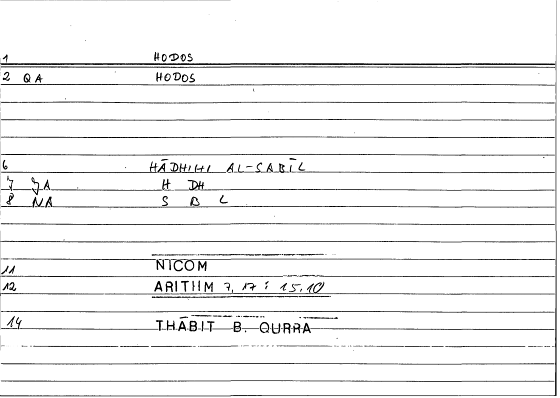 1 HODOS
2 QA HODOS
6 HĀDHIHI AL-SABĪL
7 JA H DH
8 NA S B L
11 NICOM
12 ARITHM 7, 17 : 15.10
14 THĀBIT B. QURRA